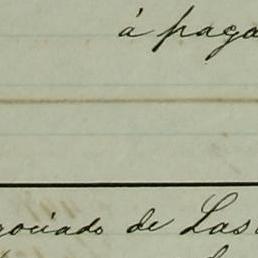 á paga
gociado de Las